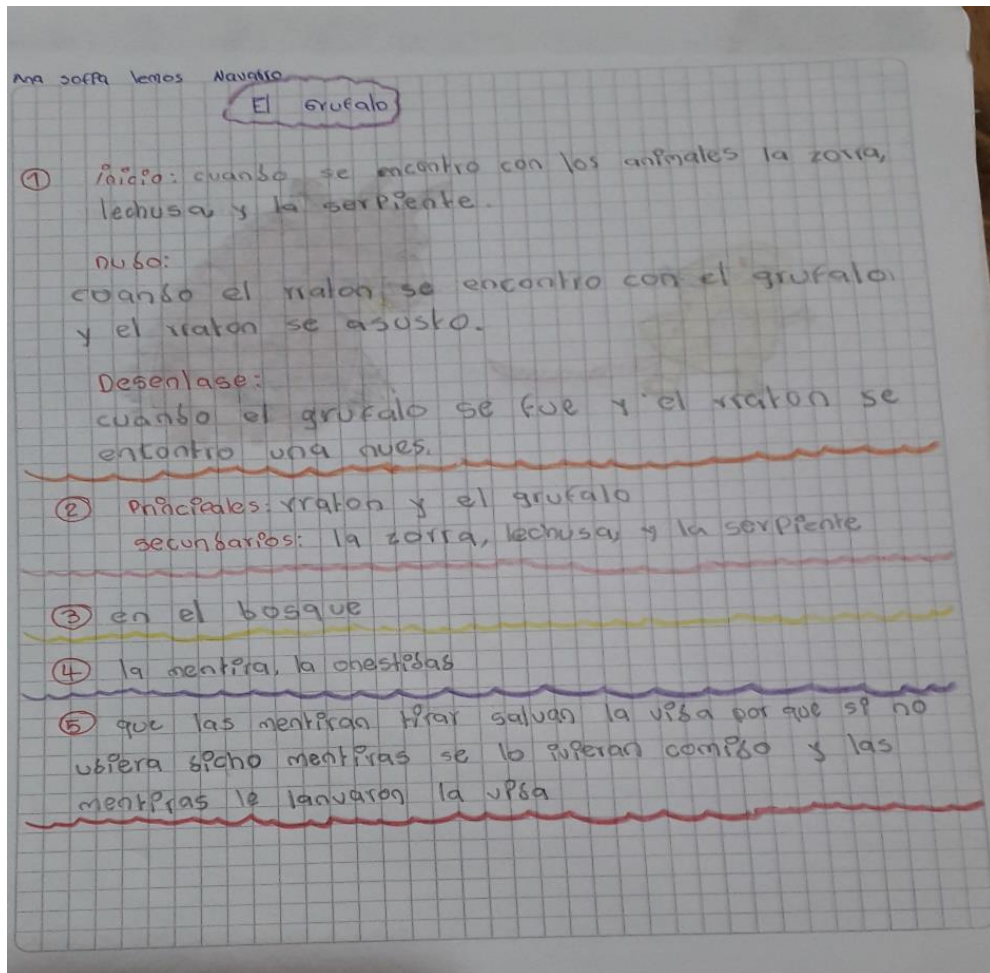 Ana soffa lemos Navarro
El Grufalo
① inicio: cuando se encontro con los animales la zorra,
lechusa y la serpiente.
nudo:
cuando el rraton se encontro con el grufalo.
y el rraton se asusto.
Desenlase:
cuando el grufalo se fue y el rraton se
encontro una nues.
② Principales: rraton y el grufalo
secundarios: la zorra, lechusa, y la serpiente
③ en el bosque
④ la mentira, la onestidas
⑤ que las mentiran salvan la vida por que si no
ubiera dicho mentiras se lo comido y las
mentiras le la vida